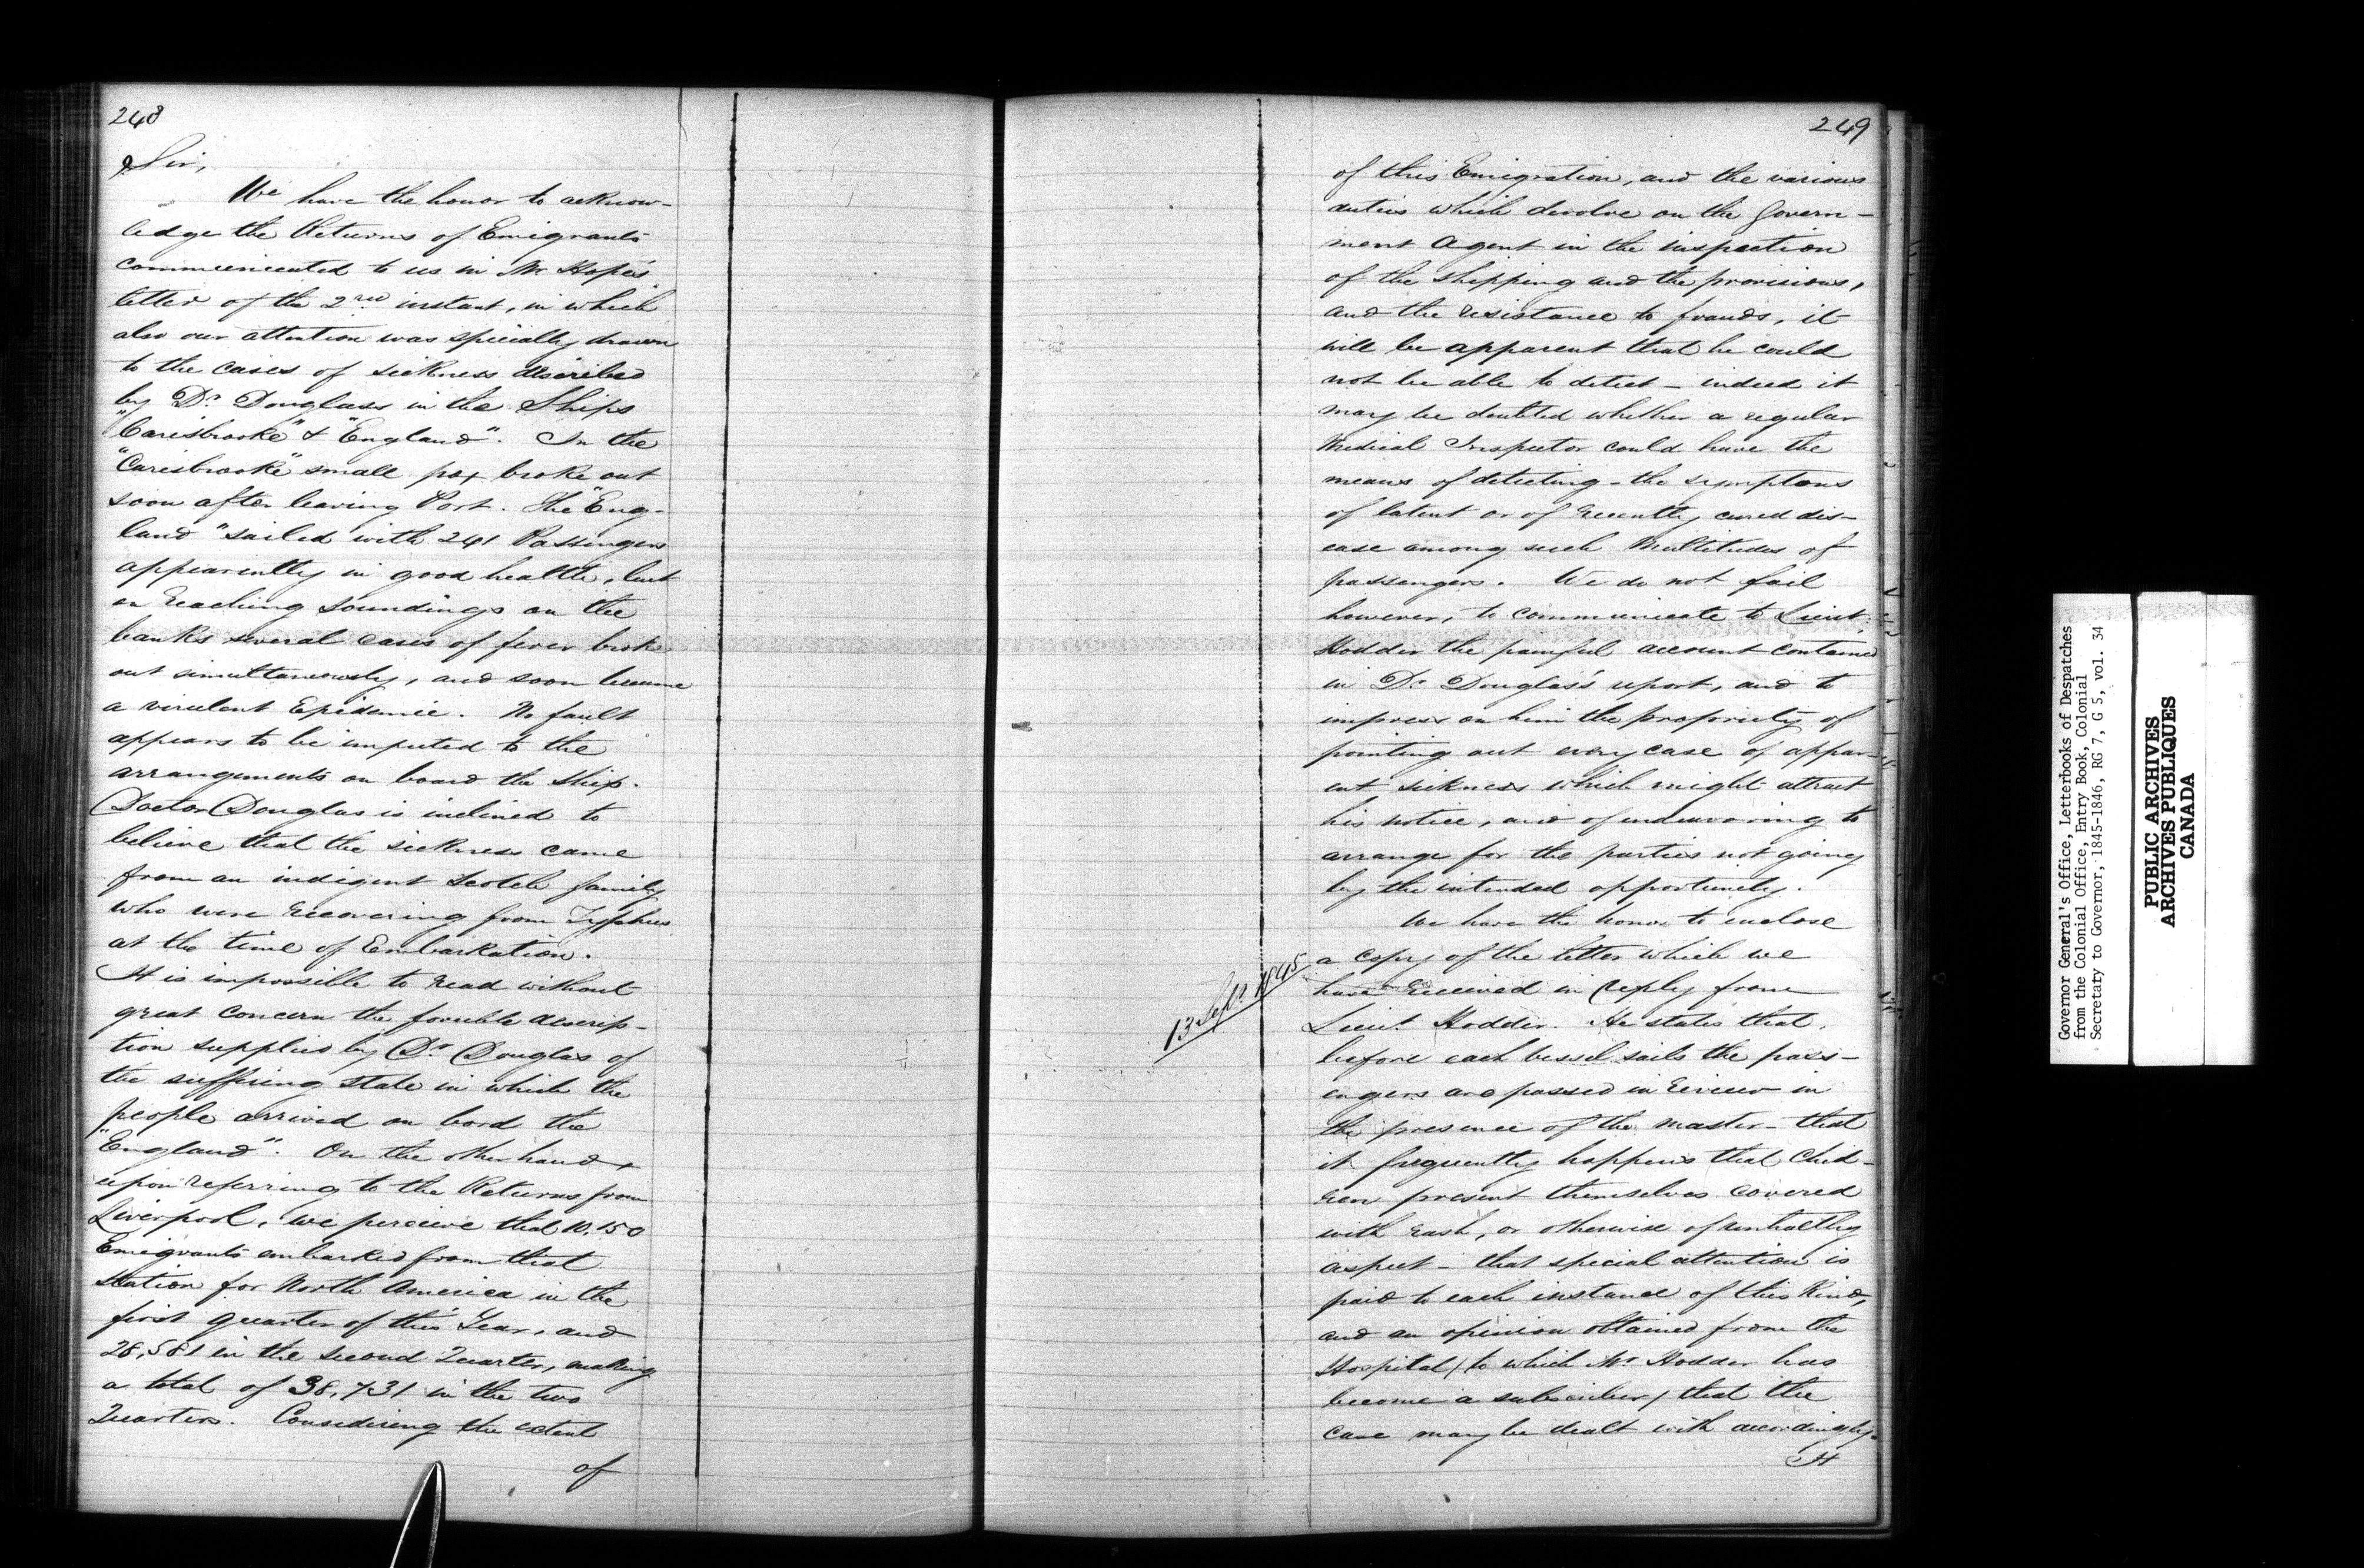 248
Sir,
We have the honor to acknow-
ledge the Returns of Emigrants
communicated to us in Mr Hope's
letter of the 2nd instant, in which
also our attention was specially drawn
to the cases of sickness described
by Dr Douglass in the Ships
"Carisbrooke" & "England". In the
"Carisbrooke" small pox broke out
soon after leaving Port. The "Eng-
land" sailed with 241 Passengers
appearently in good health, but
on reaching soundings on the
banks several cases of fever broke
out simultaneously, and soon became
a virulent Epidemic. No fault
appears to be imputed to the
arrangements on board the ship.
Doctor Douglas is inclined to
believe that the sickness came
from an indigent Scotch family
who were recovering from Typhus
at the time of Embarkation.
It is impossible to read without
great concern the forcible descrip-
tion supplied by Dr Douglas of
the suffering state in which the
people arrived on bord the
"England". On the other hand,
upon referring to the Returns from
Liverpool, we perceive that 10,150
Emigrants embarked from that
station for North America in the
first quarter of this Year, and
28,581 in the second Quarter, making
a total of 38,731 in the two
Quarters. Considering the extent
of
249
of this Emigration, and the various
duties which devolve on the Govern-
ment Agent in the inspection
of the shipping and the provisions,
and the resistance to frauds, it
will be apparent that he could
not be able to detect - indeed it
may be doubted whether a regular
Medical Inspector could have the
means of detecting - the symptoms
of latent or of recently cured dis-
ease among such Multitudes of
passengers. We do not fail
however, to communicate to Lieut.
Hodder the painful account contained
in Dr Douglas's report, and to
impress on him the propriety of
pointing out every case of appar-
ent sickness which might attract
his notice, and of endeavoring to
arrange for the parties not going
by the intended opportunity.
We have the honor to enclose
13 Sept. 1845
a copy of the letter which we
have received in reply from
Lieut Hodder. He states that,
before each vessel sails the pass-
engers are passed in review in
the presence of the master - that
it frequently happens that Child-
ren present themselves covered
with rash, or otherwise of unhealthy
aspect - that special attention is
paid to each instance of this kind,
and an opinion obtained from the
Hospital (to which Mr Hodder has
become a subscriber) that the
case may be dealt with accordingly.
It
Governor General's Office, Letterbooks of Despatches
from the Colonial Office, Entry Book, Colonial
Secretary to Governor, 1845-1846, RG 7, G 5, vol. 34
PUBLIC ARCHIVES
ARCHIVES PUBLIQUES
CANADA